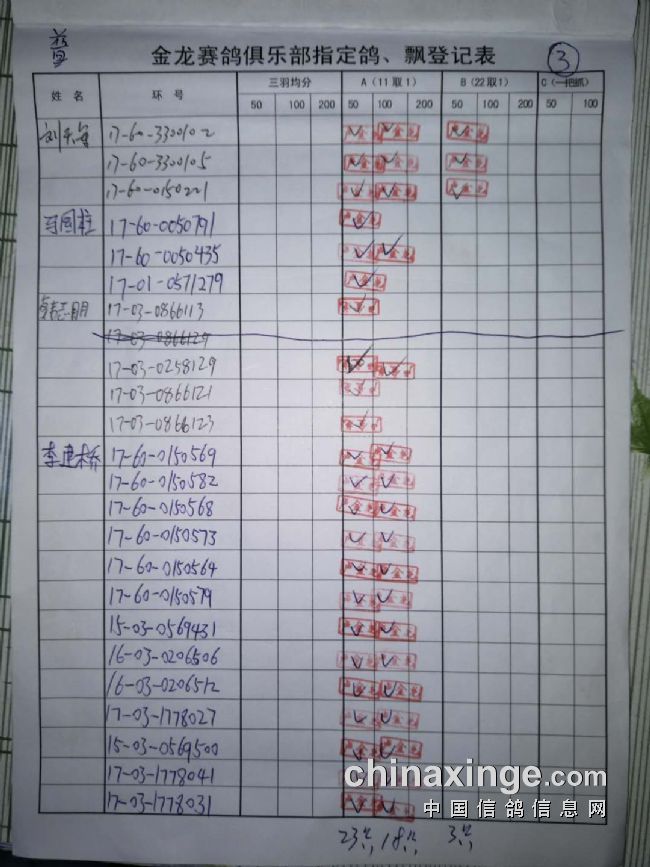 蓝
金龙赛鸽俱乐部指定鸽、飘登记表 ③
姓 名 环 号 三羽均分 A（11取1） B（22取1） C（一把抓）
50 100 200 50 100 200 50 100 200 50 100
17-60-3300102
17-60-3300105
17-60-0150221
马国柱 17-60-0050791
17-60-0050435
17-01-0571279
17-03-0866113
17-03-0866129
17-03-0258129
17-03-0866121
17-03-0866123
李建桥 17-60-0150569
17-60-0150582
17-60-0150568
17-60-0150573
17-60-0150564
17-60-0150579
15-03-0569431
16-03-0206506
16-03-0206512
17-03-1778027
15-03-0569500
17-03-1778041
17-03-1778031
23只 18只 3只
chinaxinge.com
中国信鸽信息网